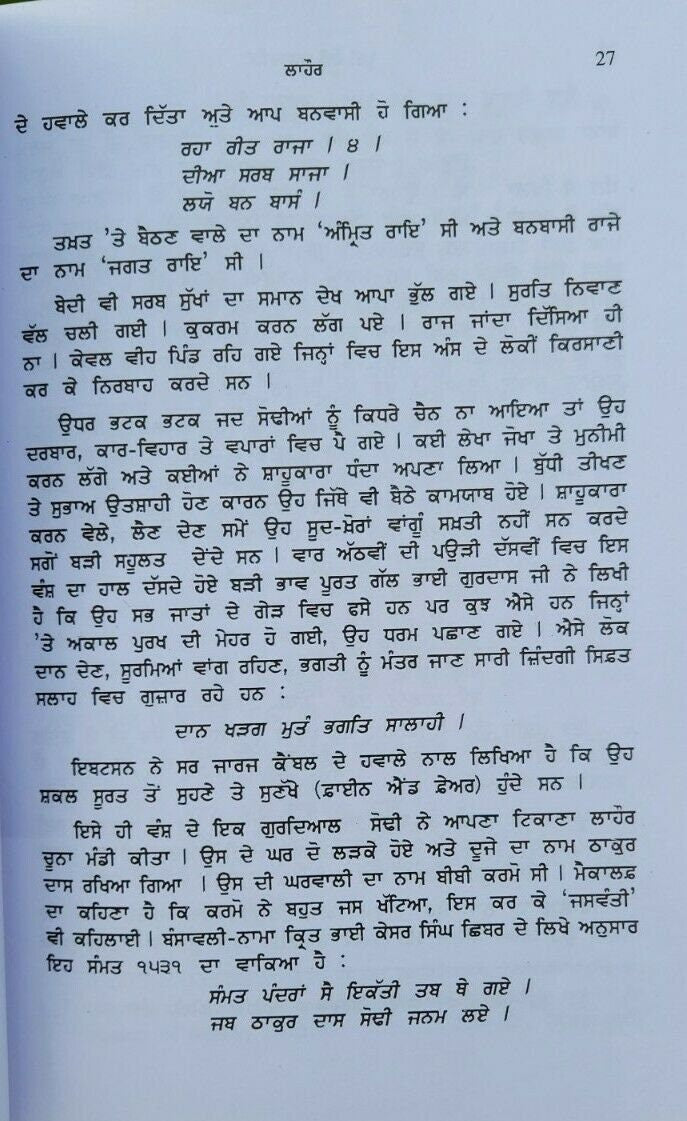 ਲਾਹੌਰ 27
ਦੇ ਹਵਾਲੇ ਕਰ ਦਿੱਤਾ ਅਤੇ ਆਪ ਬਨਵਾਸੀ ਹੋ ਗਿਆ :
ਰਹਾ ਰੀਤ ਰਾਜਾ । ੪ ।
ਦੀਆ ਸਰਬ ਸਾਜਾ ।
ਲਯੋ ਬਨ ਬਾਸੰ ।
ਤਖ਼ਤ 'ਤੇ ਬੈਠਣ ਵਾਲੇ ਦਾ ਨਾਮ ‘ਅੰਮ੍ਰਿਤ ਰਾਇ’ ਸੀ ਅਤੇ ਬਨਬਾਸੀ ਰਾਜੇ
ਦਾ ਨਾਮ ‘ਜਗਤ ਰਾਇ’ ਸੀ ।
ਬੇਦੀ ਵੀ ਸਰਬ ਸੁੱਖਾਂ ਦਾ ਸਮਾਨ ਦੇਖ ਆਪਾ ਭੁੱਲ ਗਏ । ਸੁਰਤਿ ਨਿਵਾਣ
ਵੱਲ ਚਲੀ ਗਈ । ਕੁਕਰਮ ਕਰਨ ਲੱਗ ਪਏ । ਰਾਜ ਜਾਂਦਾ ਦਿੱਸਿਆ ਹੀ
ਨਾ । ਕੇਵਲ ਵੀਹ ਪਿੰਡ ਰਹਿ ਗਏ ਜਿਨ੍ਹਾਂ ਵਿਚ ਇਸ ਅੰਸ ਦੇ ਲੋਕੀਂ ਕਿਰਸਾਣੀ
ਕਰ ਕੇ ਨਿਰਬਾਹ ਕਰਦੇ ਸਨ ।
ਉਧਰ ਭਟਕ ਭਟਕ ਜਦ ਸੋਢੀਆਂ ਨੂੰ ਕਿਧਰੇ ਚੈਨ ਨਾ ਆਇਆ ਤਾਂ ਉਹ
ਦਰਬਾਰ, ਕਾਰ-ਵਿਹਾਰ ਤੇ ਵਪਾਰਾਂ ਵਿਚ ਪੈ ਗਏ । ਕਈ ਲੇਖਾ ਜੋਖਾ ਤੇ ਮੁਨੀਮੀ
ਕਰਨ ਲੱਗੇ ਅਤੇ ਕਈਆਂ ਨੇ ਸ਼ਾਹੂਕਾਰਾ ਧੰਦਾ ਅਪਣਾ ਲਿਆ । ਬੁੱਧੀ ਤੀਖਣ
ਤੇ ਸੁਭਾਅ ਉਤਸ਼ਾਹੀ ਹੋਣ ਕਾਰਨ ਉਹ ਜਿੱਥੇ ਵੀ ਬੈਠੇ ਕਾਮਯਾਬ ਹੋਏ । ਸ਼ਾਹੂਕਾਰਾ
ਕਰਨ ਵੇਲੇ, ਲੈਣ ਦੇਣ ਸਮੇਂ ਉਹ ਸੂਦ-ਖ਼ੋਰਾਂ ਵਾਂਗੂੰ ਸਖ਼ਤੀ ਨਹੀਂ ਸਨ ਕਰਦੇ
ਸਗੋਂ ਬੜੀ ਸਹੂਲਤ ਦੇਂਦੇ ਸਨ । ਵਾਰ ਅੱਠਵੀਂ ਦੀ ਪਉੜੀ ਦੱਸਵੀਂ ਵਿਚ ਇਸ
ਵੰਸ਼ ਦਾ ਹਾਲ ਦੱਸਦੇ ਹੋਏ ਬੜੀ ਭਾਵ ਪੂਰਤ ਗੱਲ ਭਾਈ ਗੁਰਦਾਸ ਜੀ ਨੇ ਲਿਖੀ
ਹੈ ਕਿ ਉਹ ਸਭ ਜਾਤਾਂ ਦੇ ਗੇੜ ਵਿਚ ਫਸੇ ਹਨ ਪਰ ਕੁਝ ਐਸੇ ਹਨ ਜਿਨ੍ਹਾਂ
'ਤੇ ਅਕਾਲ ਪੁਰਖ ਦੀ ਮੇਹਰ ਹੋ ਗਈ, ਉਹ ਧਰਮ ਪਛਾਣ ਗਏ । ਐਸੇ ਲੋਕ
ਦਾਨ ਦੇਣ, ਸੂਰਮਿਆਂ ਵਾਂਗ ਰਹਿਣ, ਭਗਤੀ ਨੂੰ ਮੰਤਰ ਜਾਣ ਸਾਰੀ ਜ਼ਿੰਦਗੀ ਸਿਫ਼ਤ
ਸਲਾਹ ਵਿਚ ਗੁਜ਼ਾਰ ਰਹੇ ਹਨ :
ਦਾਨ ਖੜਗ ਮੁਤੰ ਭਗਤਿ ਸਾਲਾਹੀ ।
ਇਬਟਸਨ ਨੇ ਸਰ ਜਾਰਜ ਕੈਂਬਲ ਦੇ ਹਵਾਲੇ ਨਾਲ ਲਿਖਿਆ ਹੈ ਕਿ ਉਹ
ਸ਼ਕਲ ਸੂਰਤ ਤੋਂ ਸੁਹਣੇ ਤੇ ਸੁਣੱਖੇ (ਫ਼ਾਈਨ ਐਂਡ ਫ਼ੇਅਰ) ਹੁੰਦੇ ਸਨ ।
ਇਸੇ ਹੀ ਵੰਸ਼ ਦੇ ਇਕ ਗੁਰਦਿਆਲ ਸੋਢੀ ਨੇ ਆਪਣਾ ਟਿਕਾਣਾ ਲਾਹੌਰ
ਚੂਨਾ ਮੰਡੀ ਕੀਤਾ । ਉਸ ਦੇ ਘਰ ਦੋ ਲੜਕੇ ਹੋਏ ਅਤੇ ਦੂਜੇ ਦਾ ਨਾਮ ਠਾਕੁਰ
ਦਾਸ ਰਖਿਆ ਗਿਆ । ਉਸ ਦੀ ਘਰਵਾਲੀ ਦਾ ਨਾਮ ਬੀਬੀ ਕਰਮੋ ਸੀ । ਮੈਕਾਲਫ਼
ਦਾ ਕਹਿਣਾ ਹੈ ਕਿ ਕਰਮੋ ਨੇ ਬਹੁਤ ਜਸ ਖੱਟਿਆ, ਇਸ ਕਰ ਕੇ ‘ਜਸਵੰਤੀ’
ਵੀ ਕਹਿਲਾਈ । ਬੰਸਾਵਲੀ-ਨਾਮਾ ਕ੍ਰਿਤ ਭਾਈ ਕੇਸਰ ਸਿੰਘ ਛਿਬਰ ਦੇ ਲਿਖੇ ਅਨੁਸਾਰ
ਇਹ ਸੰਮਤ ੧੫੩੧ ਦਾ ਵਾਕਿਆ ਹੈ :
ਸੰਮਤ ਪੰਦਰਾਂ ਸੈ ਇਕੱਤੀ ਤਬ ਥੇ ਗਏ ।
ਜਬ ਠਾਕੁਰ ਦਾਸ ਸੋਢੀ ਜਨਮ ਲਏ ।